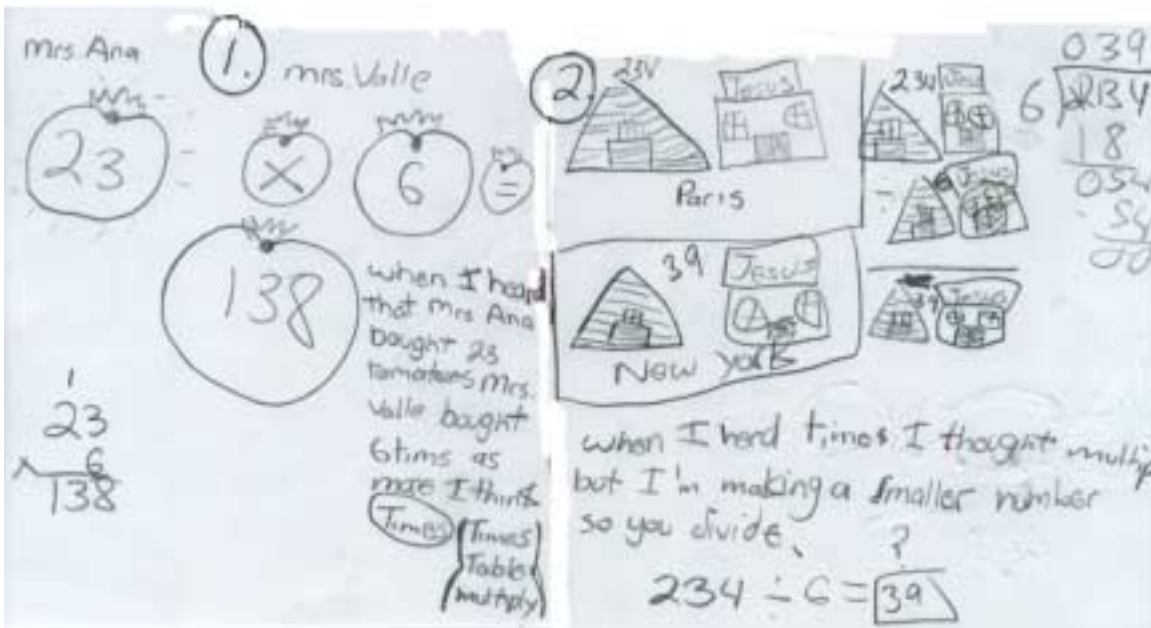 Mrs. Ana
1.
Mrs. Valle
23
×
6
=
138
1
23
× 6
138
when I heard
that Mrs Ana
bought 23
tomatoes Mrs.
Valle bought
6 tims as
more I think
Times
(Times
Table
multiply)
2.
234
Jesus
Paris
39
Jesus
New york
234
Jesus
-
6
Jesus
39
Jesus
039
6 234
18
054
- 54
00
when I herd times I thought
but I'm making a smaller number
so you divide.
?
234 ÷ 6 = 39